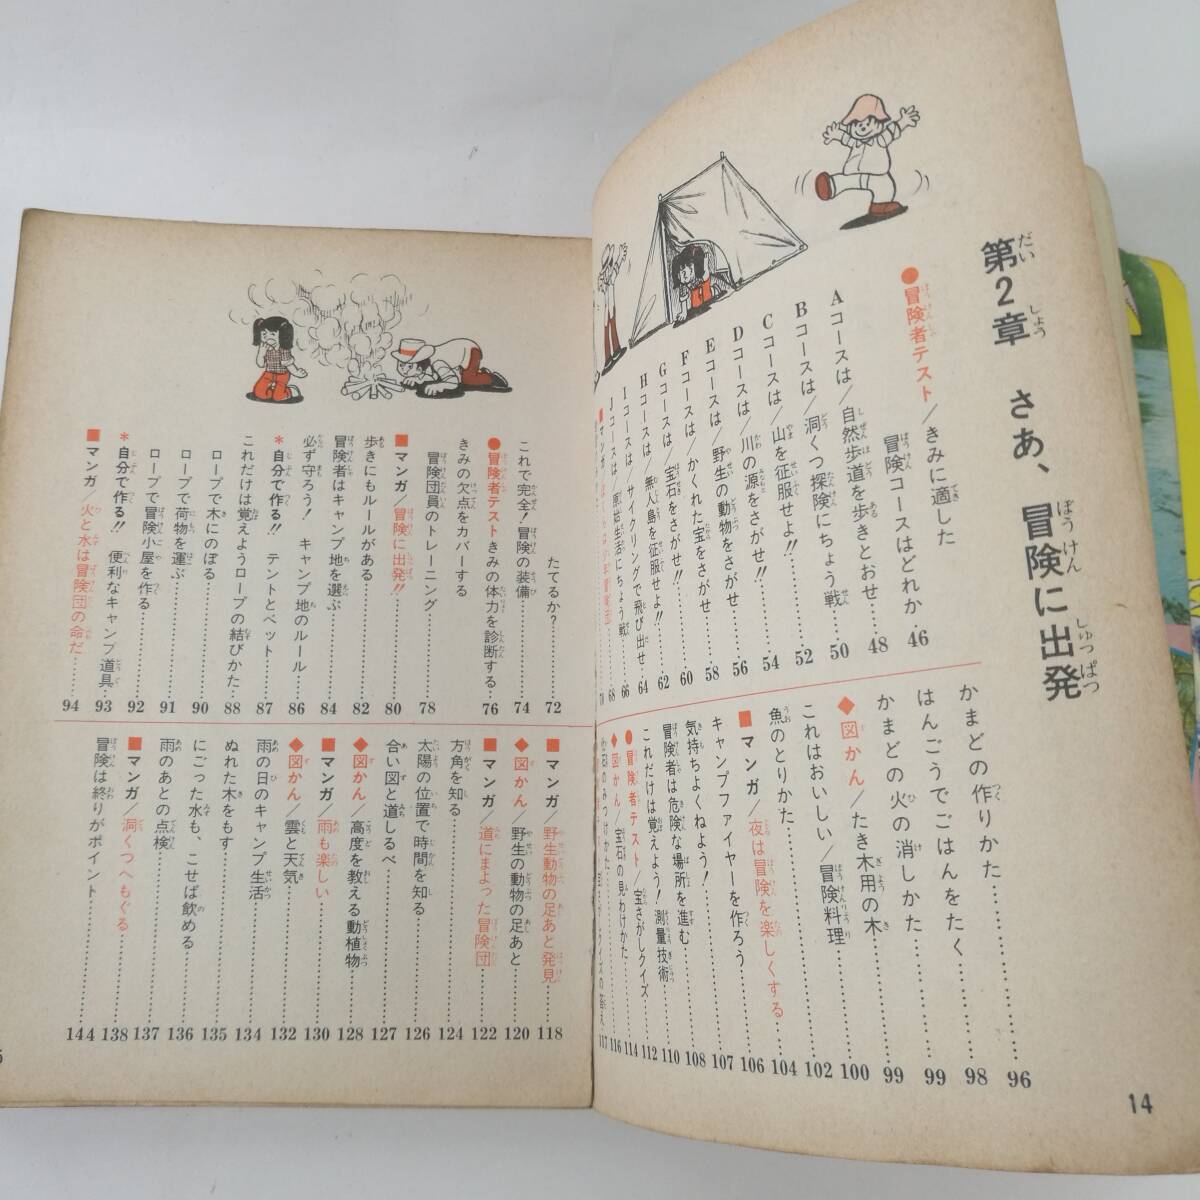 第2章 さあ、冒険に出発
●冒険者テスト/きみに適した
冒険コースはどれか……46
Aコースは/自然歩道を歩きとおせ……48
Bコースは/洞くつ探険にちょう戦……50
Cコースは/山を征服せよ!!……52
Dコースは/川の源をさがせ!!……54
Eコースは/野生の動物をさがせ……56
Fコースは/かくれた宝をさがせ……58
Gコースは/宝石をさがせ!!……60
Hコースは/無人島を征服せよ!!……62
Iコースは/サイクリングで飛び出せ……64
Jコースは/原始生活にちょう戦……66
68
かまどの作りかた……96
はんごうでごはんをたく……98
かまどの火の消しかた……99
◆図かん/たき木用の木……99
これはおいしい/冒険料理……100
魚のとりかた……102
■マンガ/夜は冒険を楽しくする……104
キャンプファイヤーを作ろう……106
気持ちよくねよう!……107
冒険者は危険な場所を進む……108
これだけは覚えよう!測量技術……110
●冒険者テスト/宝さがしクイズ……112
◆図かん/宝石の見わけかた……114
116
117
14
たてるか?……72
これで完全!冒険の装備……74
●冒険者テストきみの体力を診断する……76
きみの欠点をカバーする
冒険団員のトレーニング……78
■マンガ/冒険に出発!!……80
歩きにもルールがある……82
冒険者はキャンプ地を選ぶ……84
必ず守ろう! キャンプ地のルール……86
*自分で作る!! テントとベット……87
これだけは覚えようロープの結びかた……88
ロープで木にのぼる……90
ロープで荷物を運ぶ……91
ロープで冒険小屋を作る……92
*自分で作る!! 便利なキャンプ道具……93
■マンガ/火と水は冒険団の命だ……94
■マンガ/野生動物の足あと発見……118
◆図かん/野生の動物の足あと……120
■マンガ/道にまよった冒険団……122
方角を知る……124
太陽の位置で時間を知る……126
合い図と道しるべ……127
◆図かん/高度を教える動植物……128
■マンガ/雨も楽しい……130
◆図かん/雲と天気……132
雨の日のキャンプ生活……134
ぬれた木をもす……135
にごった水も、こせば飲める……136
雨のあとの点検……137
■マンガ/洞くつへもぐる……138
冒険は終りがポイント……144